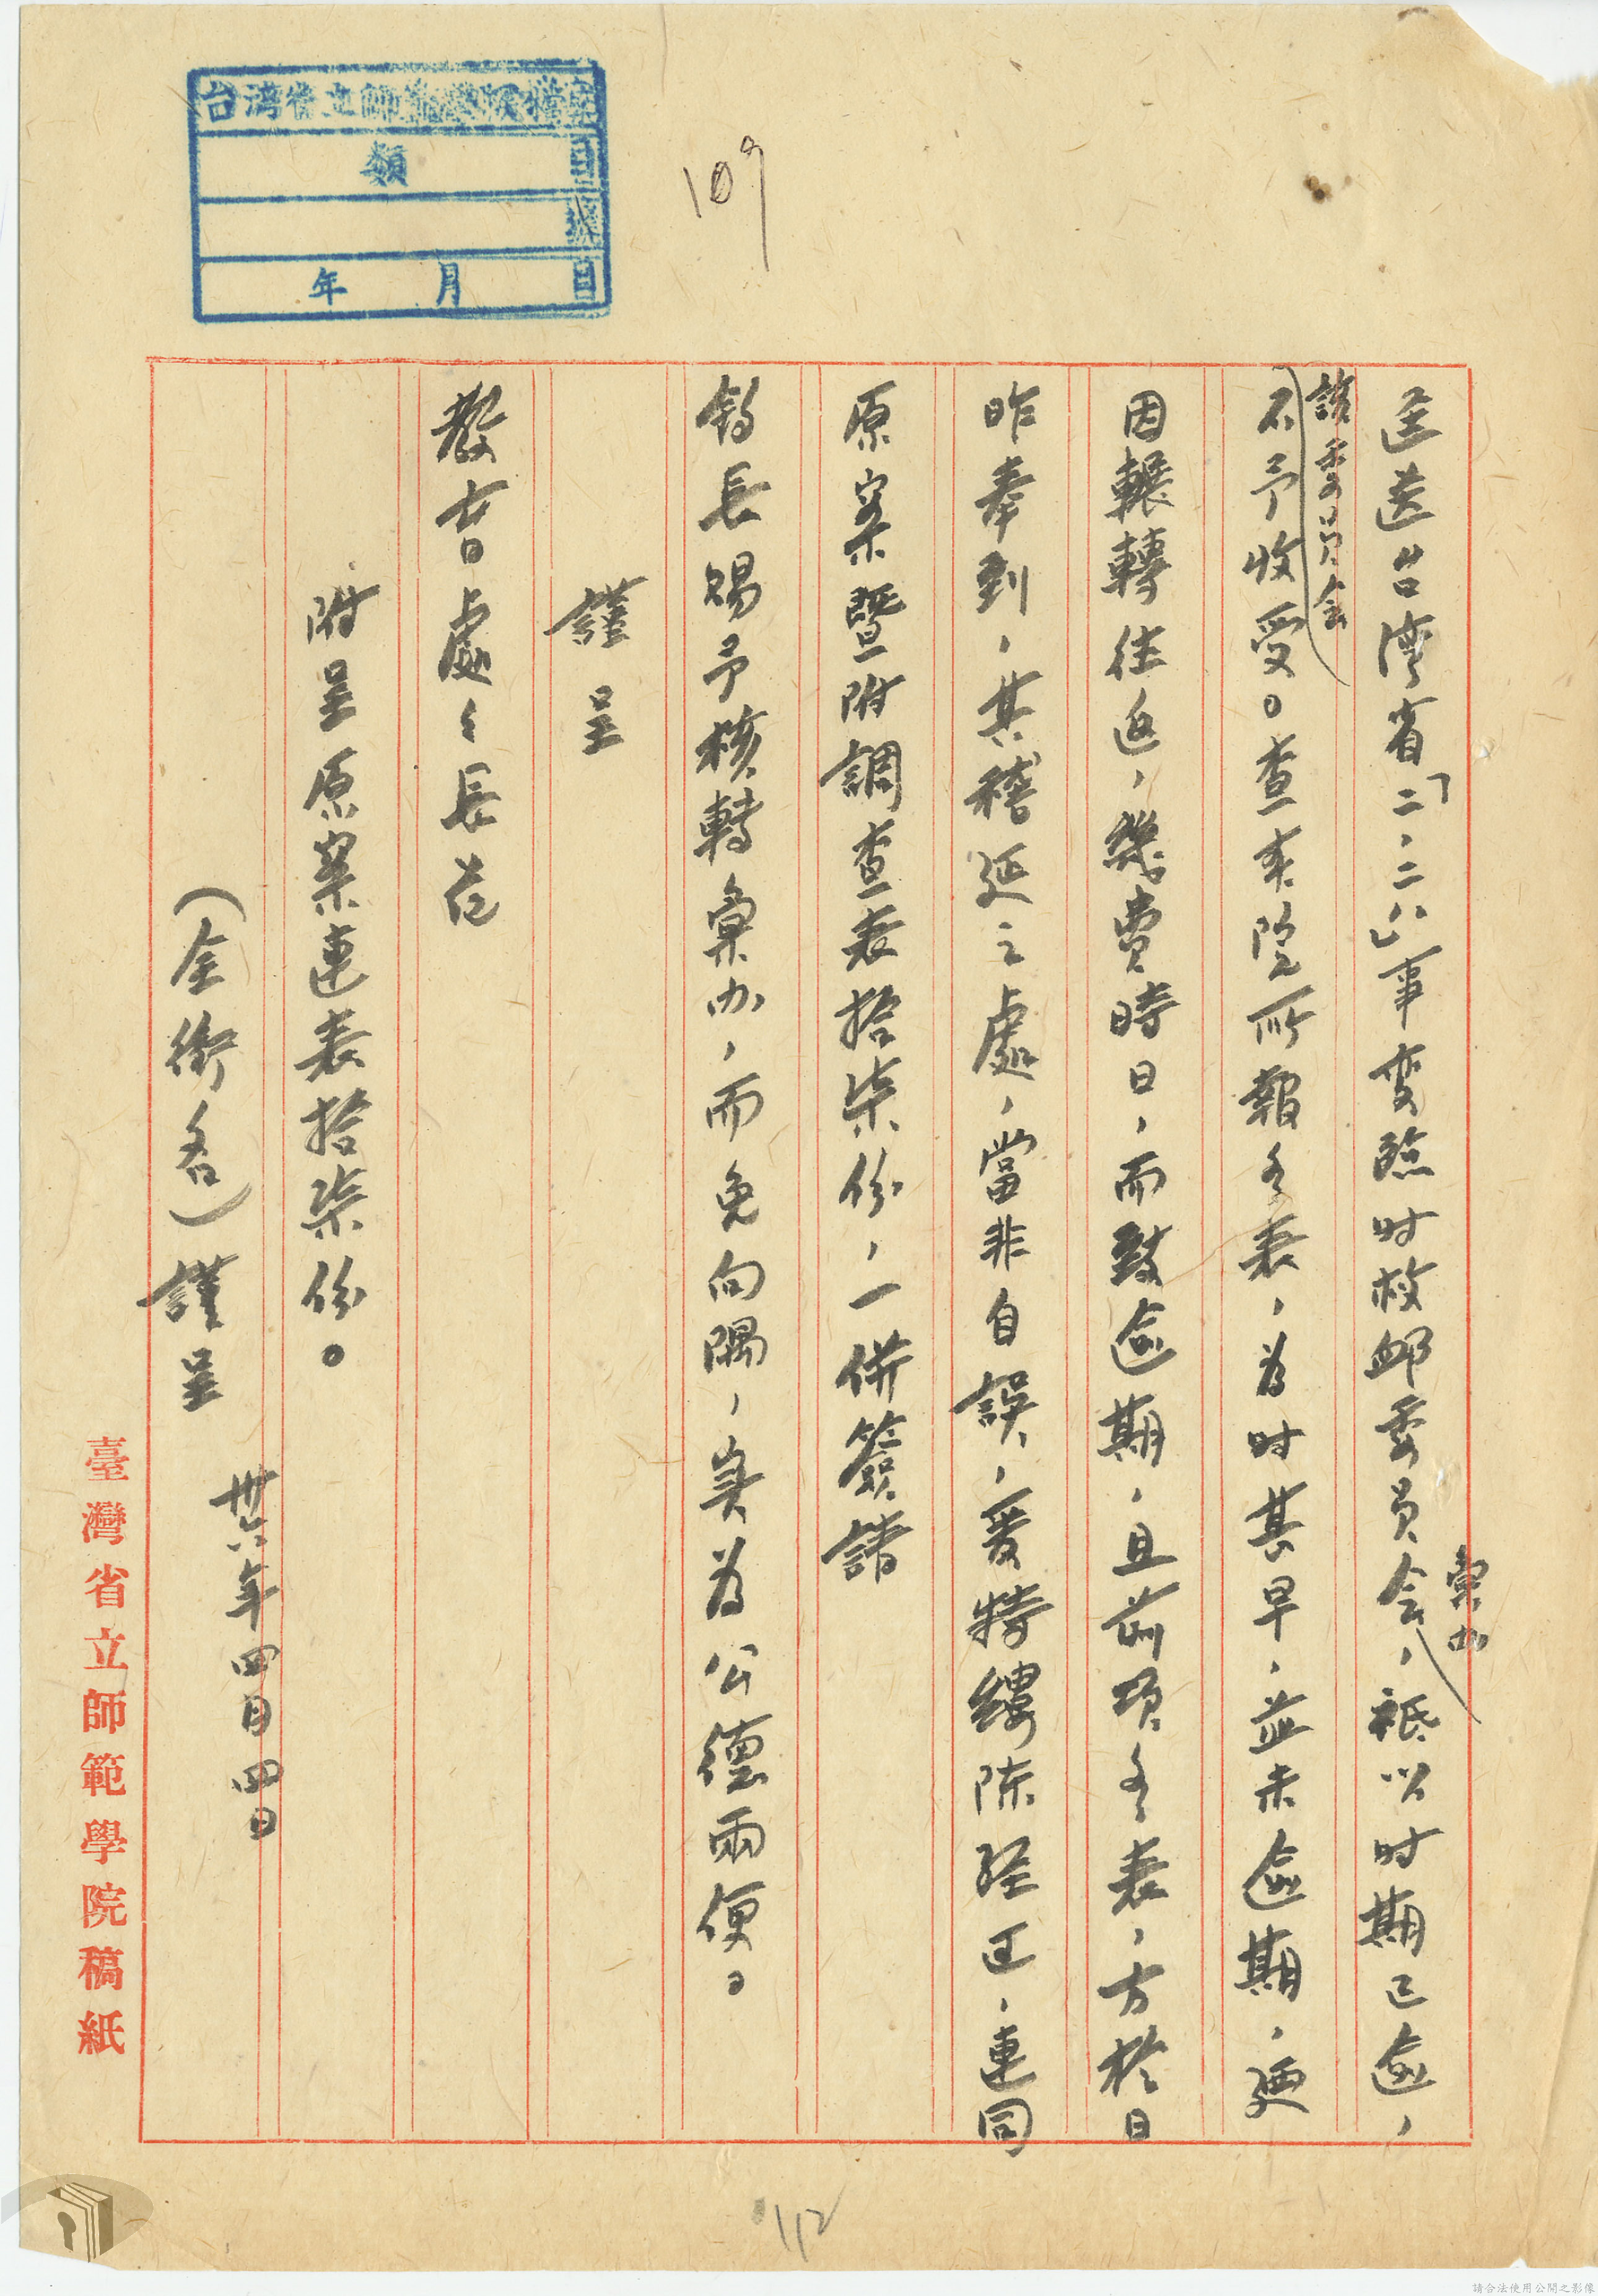 台湾省立師範學院檔案
類 目
號
年 月 日
109
彙办
逕送台湾省「二、二八」事变臨时救邺委員会，祗以时期已逾，
該委員会
不予收受。查本院所報各表，為时甚早，並未逾期，
因輾轉往返，幾費時日，而致逾期，且前項各表，方於日
昨奉到，其稽延之處，當非自誤，爰特縷陈經过，連同
原案暨附調查表拾柒份，一併簽請
鈞長賜予核轉彙办，而免向隅，实為公德兩便。
謹呈
教育處處長范
附呈原案連表拾柒份。
（全銜名）謹呈
卅六年四月四日
臺灣省立師範學院稿紙
112
請合法使用公開之影像